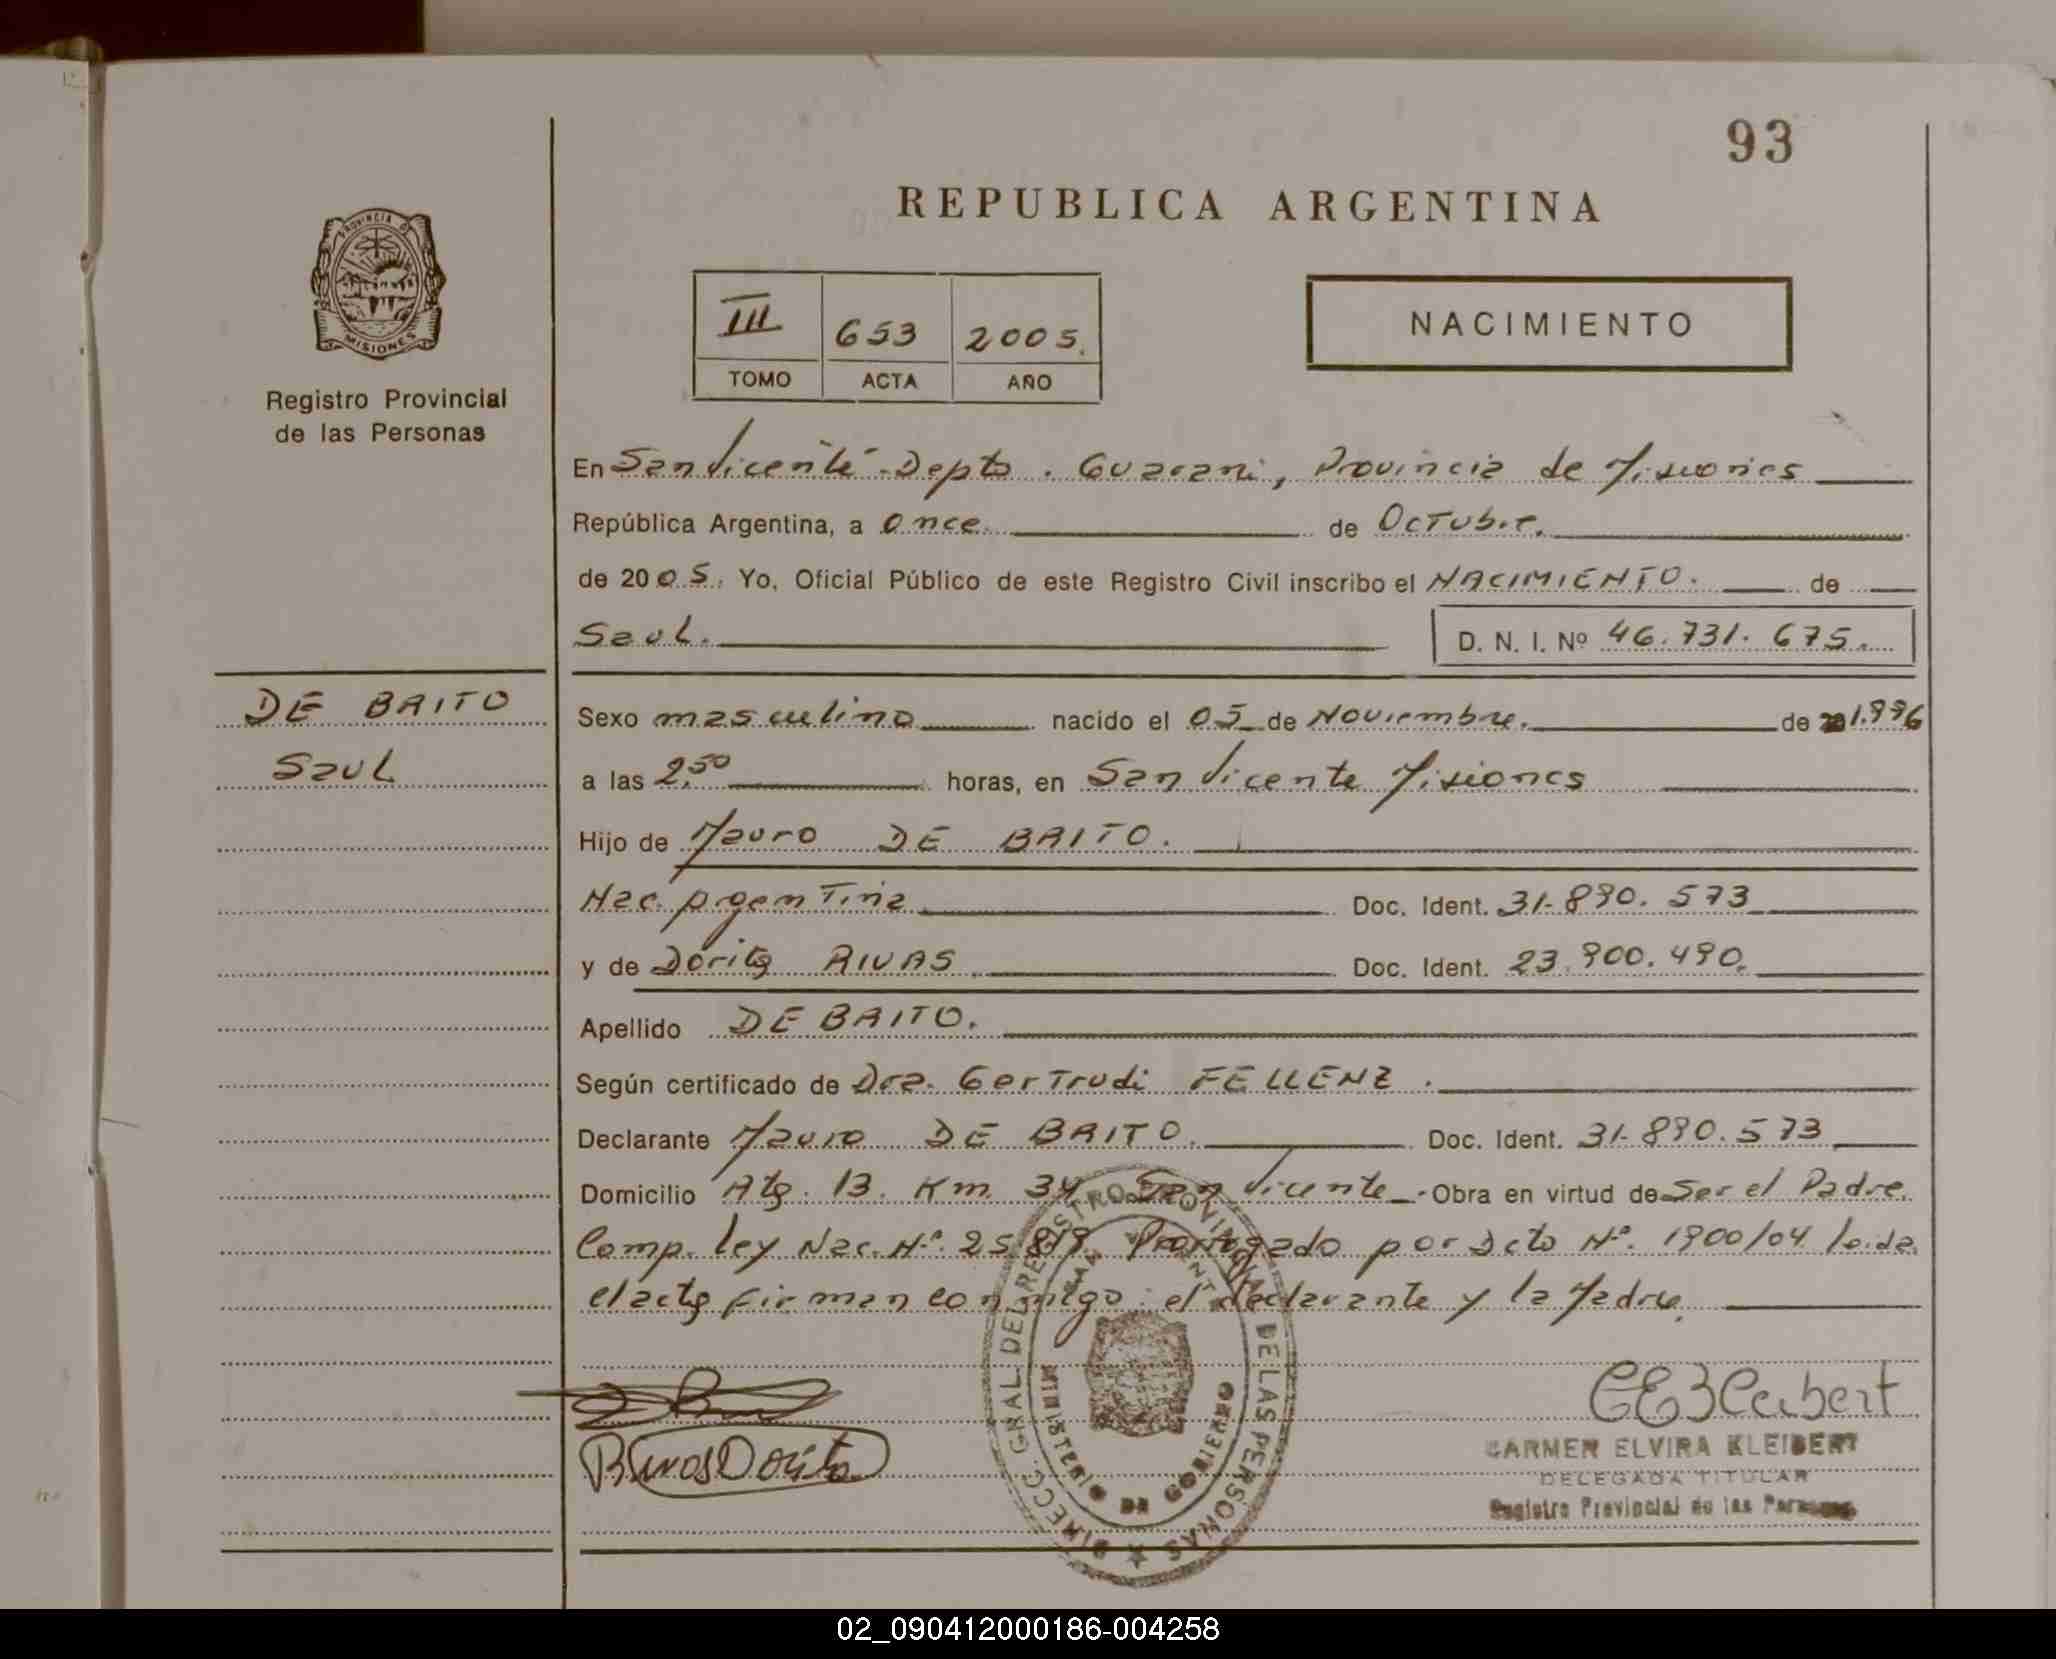 93
REPUBLICA ARGENTINA
PROVINCIA DE
MISIONES
Registro Provincial
de las Personas
III 653 2005.
TOMO ACTA AÑO
NACIMIENTO
En San Vicente - Depto. Guarani, Provincia de Misiones
República Argentina, a once de Octubre.
de 2005. Yo, Oficial Público de este Registro Civil inscribo el NACIMIENTO. de
Saul. D. N. I. Nº 46.731.675.
DE BRITO
Saul
Sexo masculino nacido el 05 de Noviembre. de 1.996
a las 2,50 horas, en San Vicente Misiones
Hijo de Mauro DE BRITO.
Nac. Argentina Doc. Ident. 31.890.573
y de Dorita RIVAS Doc. Ident. 23.900.490.
Apellido DE BRITO.
Según certificado de Dra. Gertrudi FELLENZ.
Declarante Mauro DE BRITO. Doc. Ident. 31.890.573
Domicilio Ata. 13. Km. 34 San Vicente. Obra en virtud de Ser el Padre.
Comp. ley Nac. Nº. 25.819 Prorrogado por Dcto Nº. 1900/04 leida
el acta firman conmigo: el declarante y la Madre.
Rivas Dorita
CEKleibert
CARMEN ELVIRA KLEIBERT
DELEGADA TITULAR
Registro Provincial de las Personas
DIRECC. GRAL. DEL REGISTRO PROVINCIAL DE LAS PERSONAS
MINISTERIO DE GOBIERNO
02_090412000186-004258